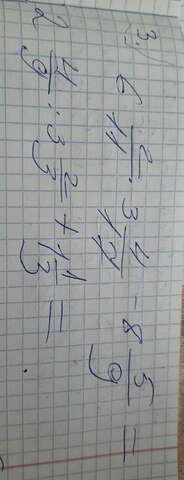 3.
6 2/11 · 3 4/17 - 8 5/9 =
2 4/9 : 3 2/3 + 1 1/3 =